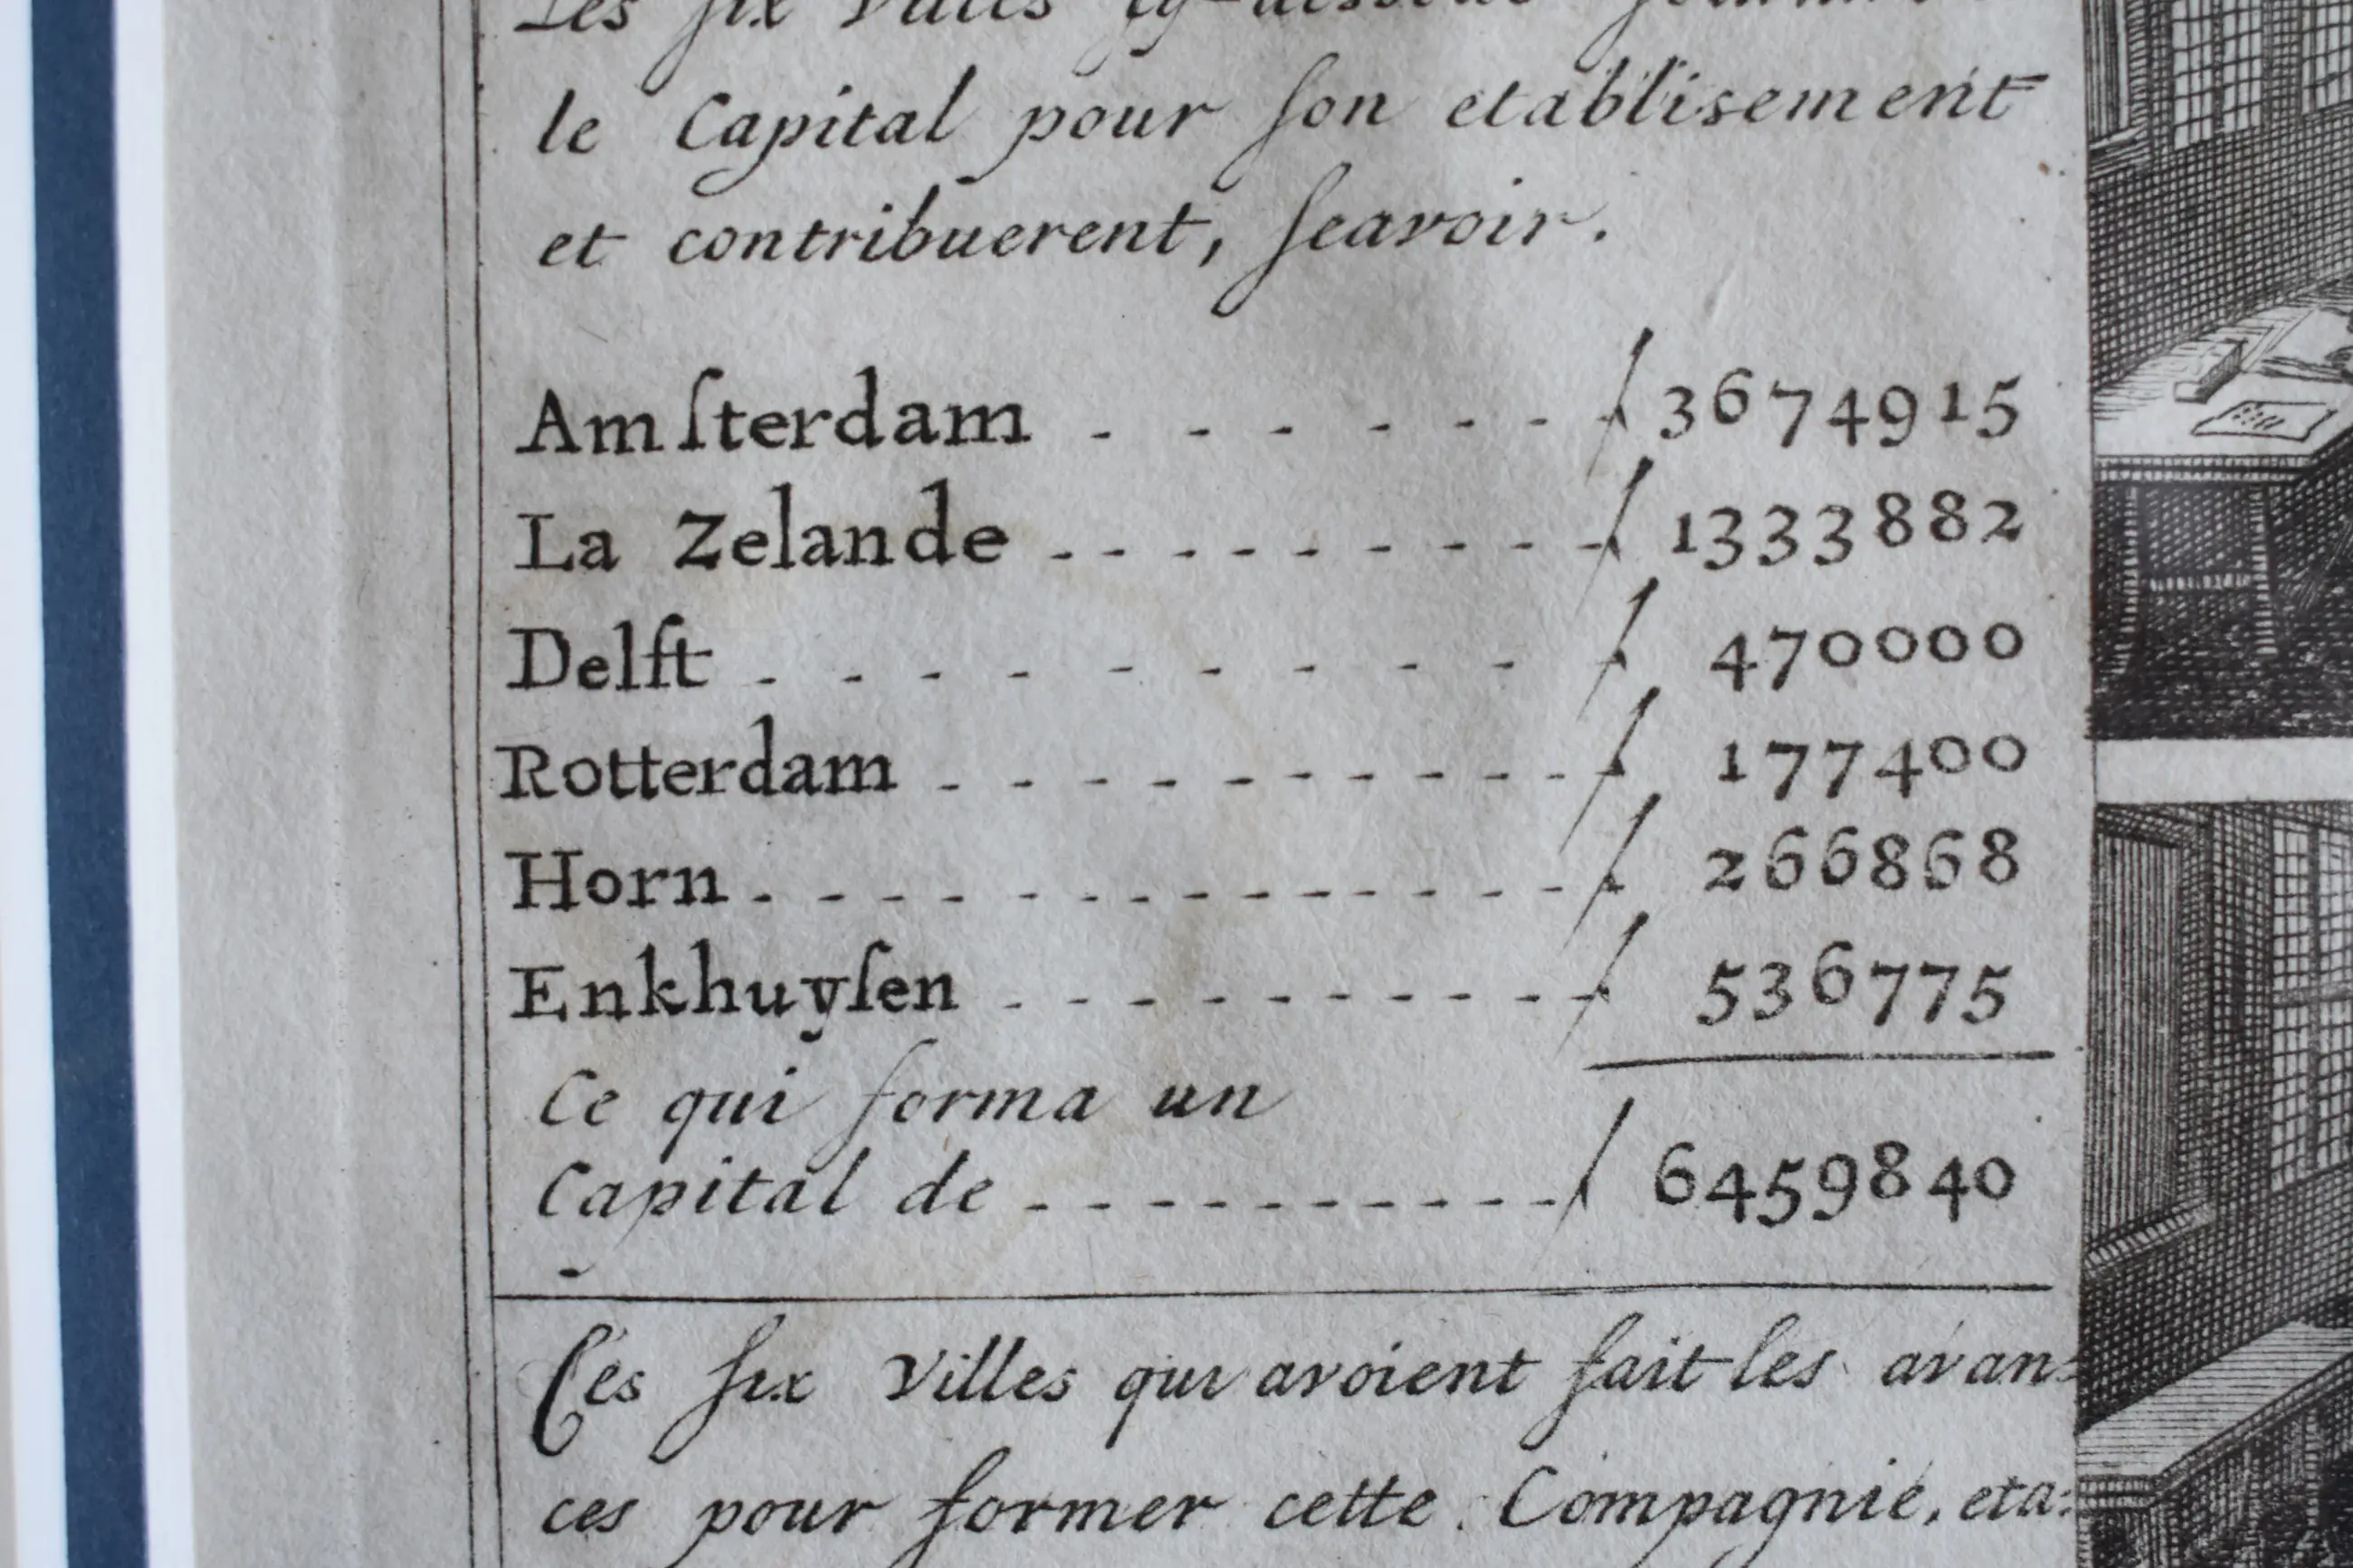 Les ſix Villes cy-dessous
le Capital pour ſon etabliſement
et contribuerent, ſcavoir.
Amſterdam - - - - - - ƒ 3674915
La Zelande - - - - - - - - - - ƒ 1333882
Delft - - - - - - - - - - ƒ 470000
Rotterdam - - - - - - - - - - - ƒ 177400
Horn - - - - - - - - - - - - - - ƒ 266868
Enkhuyſen - - - - - - - - - - - ƒ 536775
Ce qui forma un
Capital de - - - - - - - - - - - ƒ 6459840
Ces ſix Villes qui avoient fait les avan-
ces pour former cette Compagnie, eta-